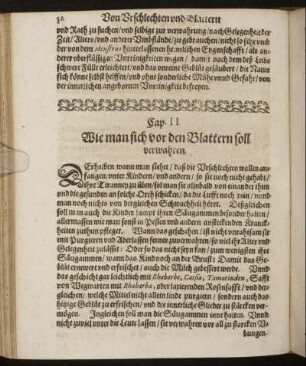 32 Von Vrschlechten vnd Blattern
vnd Rath zu suchen/ vnd selbige zur verwahrung/ nach Gelegenheit der
Zeit/ Alters/ vnd andere Vmbstände/ zu gebrauchen/ nicht so sehr vmb
der von den hinterlassenen heimlichen Eygenschafft/ als an-
derer vberflüssiger Vnreinigkeiten wegen/ damit nach dem des Leibs
schwere Fülle erleichtert/ vnd das vnreine Geblüt gesäubert/ die Natur
sich könne selbst helffen/ vnd ohne sonderliche Mühe vnd Gefahr/ von
der innerlichen angebornen Vnreinigkeit befreyen.
Cap. II
Wie man sich vor den Blattern soll
verwahren.
DErhalben wann man siehet/ daß die Vrschlechten wollen an-
fangen/ vnter Kindern/ vnd andern/ so sie noch nicht gehabt/
ihre Tiranney zu üben/ sol man sie alsbald von einander thun
vnd die gesunden an solche Orth schicken/ da die Lufft noch rein/ vnd
man noch nichts von dergleichen Schwachheit hört. Deßgleichen
soll man auch die Kinder sampt ihren Säugammen besonder halten/
allermassen wie man sonst in Pesten vnd andern ansteckenden Kranck-
heiten zuthun pfleget. Wann das geschehen/ ist nicht vnrahtsam sie
mit Purgieren vnd Aderlassen ferner zuverwahren/ so viel ihr Alter vnd
Gelegenheit zuläßt: Oder so das nicht seyn kan/ zum wenigsten ihre
Säugammen/ wann das Kind noch an der Brust: Damit das Ge-
blüt ernewert vnd erfrischet/ auch die Milch gebessert werde. Vnnd
das geschicht gar leichtlich mit Rhabarbe, Cassia, Tamarinden, Safft
von Wegwarten mit Rhabarba, oder laxierenden Rosensafft/ vnd der-
gleichen/ welche Mittel nicht allein linde purgiern/ sondern auch das
hitzige Geblüt zu erfrischen/ vnd die innerliche Glieder zu stärcken ver-
mögen. Ingleichen soll man die Säugammen inne halten. Vnnd
nicht zuviel vnter die Leute lassen/ sie verwahren vor all zu starcken V-
bungen.